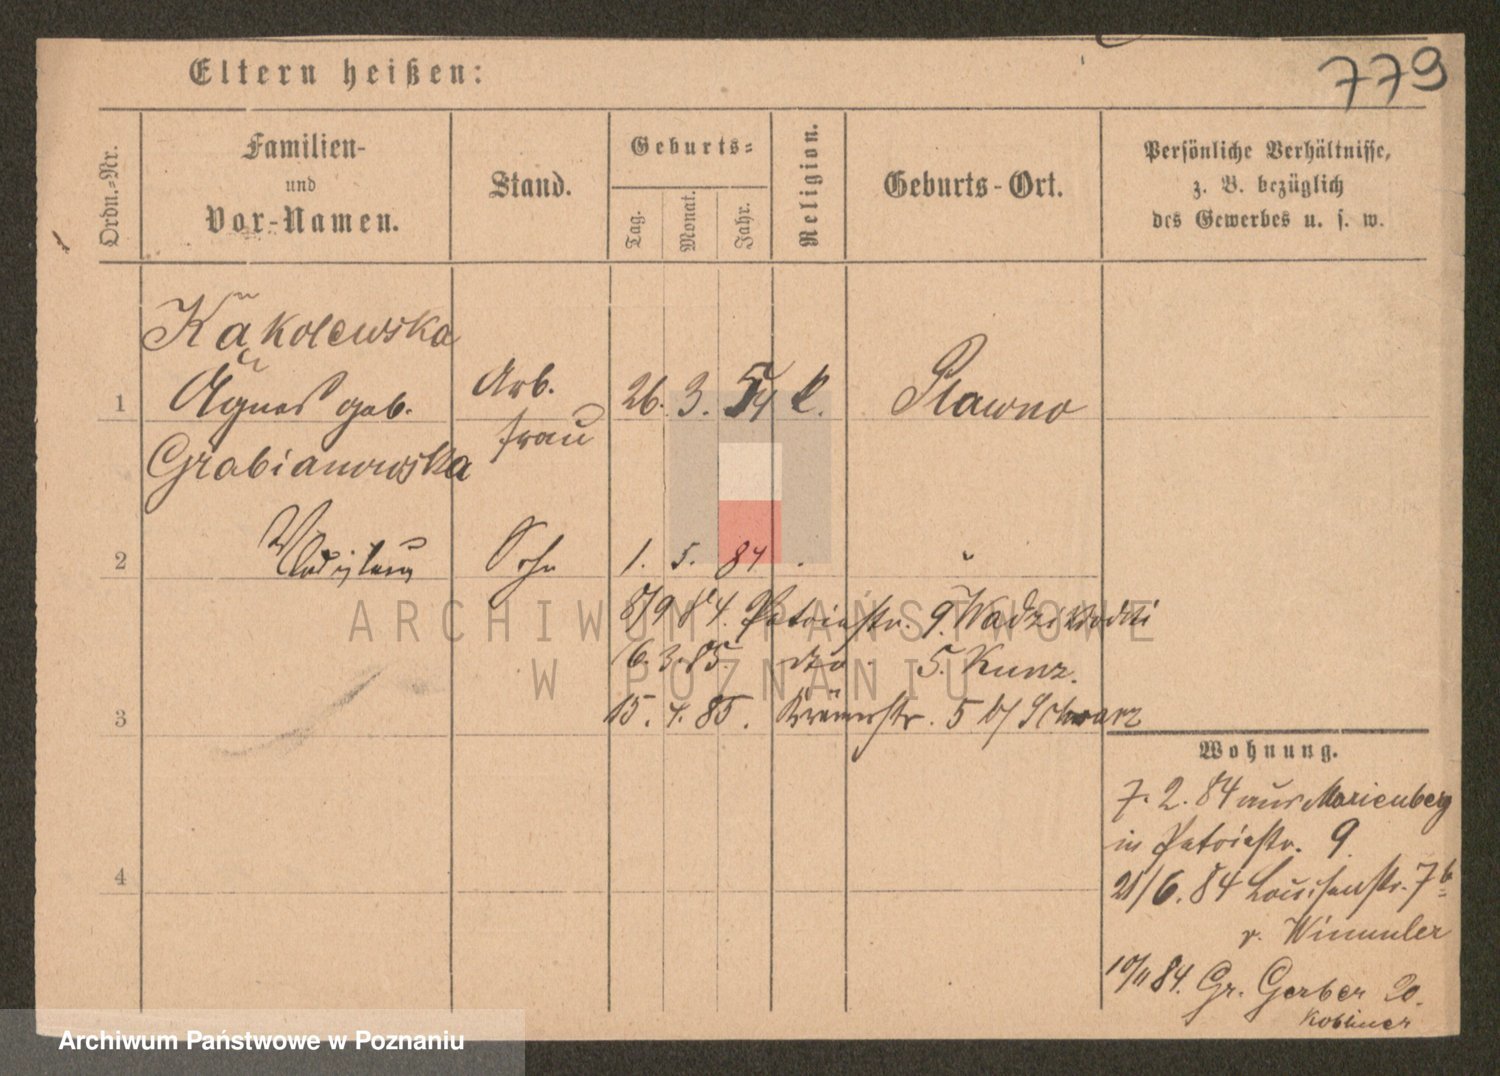 779
Eltern heißen:
Ordn.-Nr.
Familien-
und
Vor-Namen.
Stand.
Geburts-
Tag.
Monat.
Jahr.
Religion.
Geburts-Ort.
Persönliche Verhältnisse,
z. B. bezüglich
des Gewerbes u. s. w.
Kąkolewska
1 Agnes geb. Arb. 26. 3. 54 k. Slawno
frau
Grabianowska
2 Sohn 1. 5. 84 "
8/9 84. Patriastr. 9.
6. 3. 85. dto. 5. Kunz.
3 15. 4. 85. Krämerstr. 5 b/ Schwarz
Wohnung.
7. 2. 84 aus Marienberg
in 9.
4
21/6. 84 Louisenstr. 7b
v. Wimmler
10/11 84. Gr. Gerber 20.
ARCHIWUM PAŃSTWOWE
W POZNANIU
Archiwum Państwowe w Poznaniu